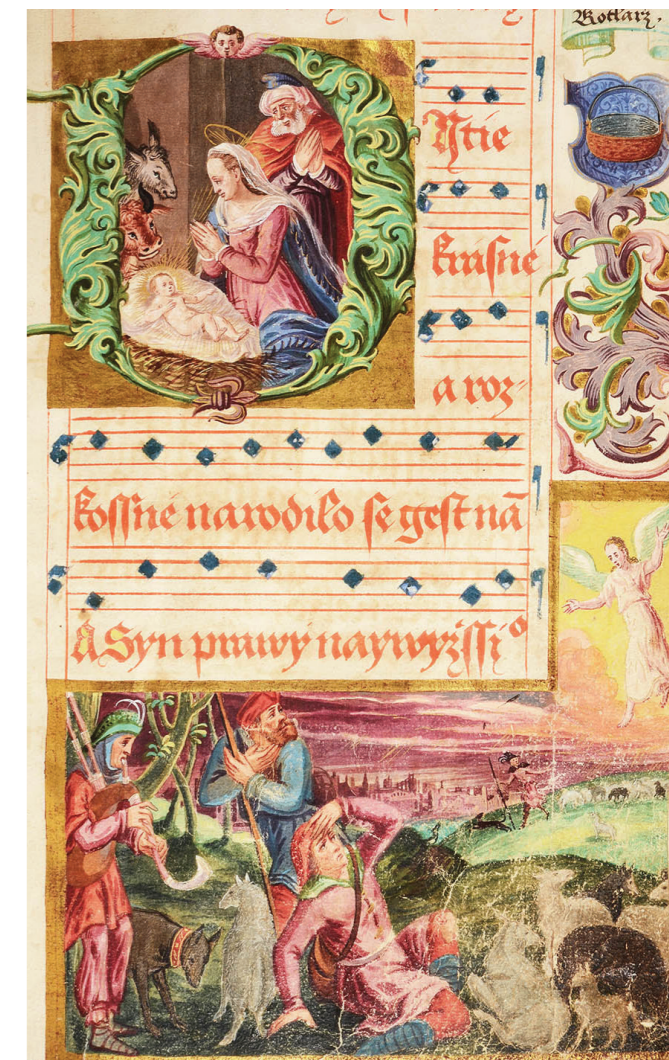 Kotlarz.
DYtie
krasné
a roz-
kossné narodilo se gest nã
A Syn prawý naywyžssiº